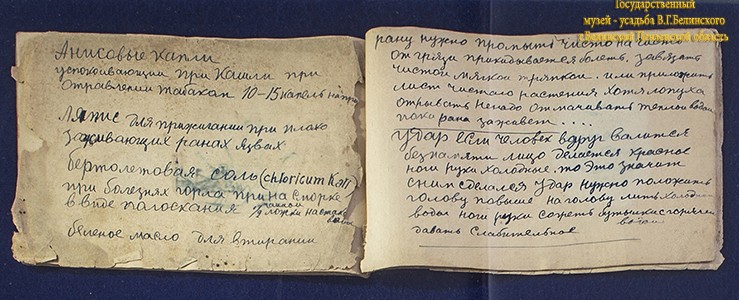 Государственный
музей - усадьба В.Г.Белинского
г.Белинский Пензенской область
Анисовые капли
успокоивающии при Кашли при
отравлении табакам 10-15 капель на при
Ляпис для прижигании при плохо
заживающих ранах Язвах
бертолетовая соль (chloricum Kali)
при болезнях горла при насморке
в виде полоскания ложки на стакан
беленое масло для втирании
рану нужно промыть чисто на чисто
от грязи прикадывается болеть. завязать
чистой мягкой тряпкой. или приложить
лист чистого растения хотя лопуха
отрывать ненадо отмачивать теплой водой
пока рана заживет ....
удар если человек вдруг валится
безпамяти лицо делается красное
ноги руки холодные. то это значит
сним сделался удар нужно положить
голову повыше на голову лить холодн
воды ноги руки согреть бутылки с горячей
водой
давать слабительное